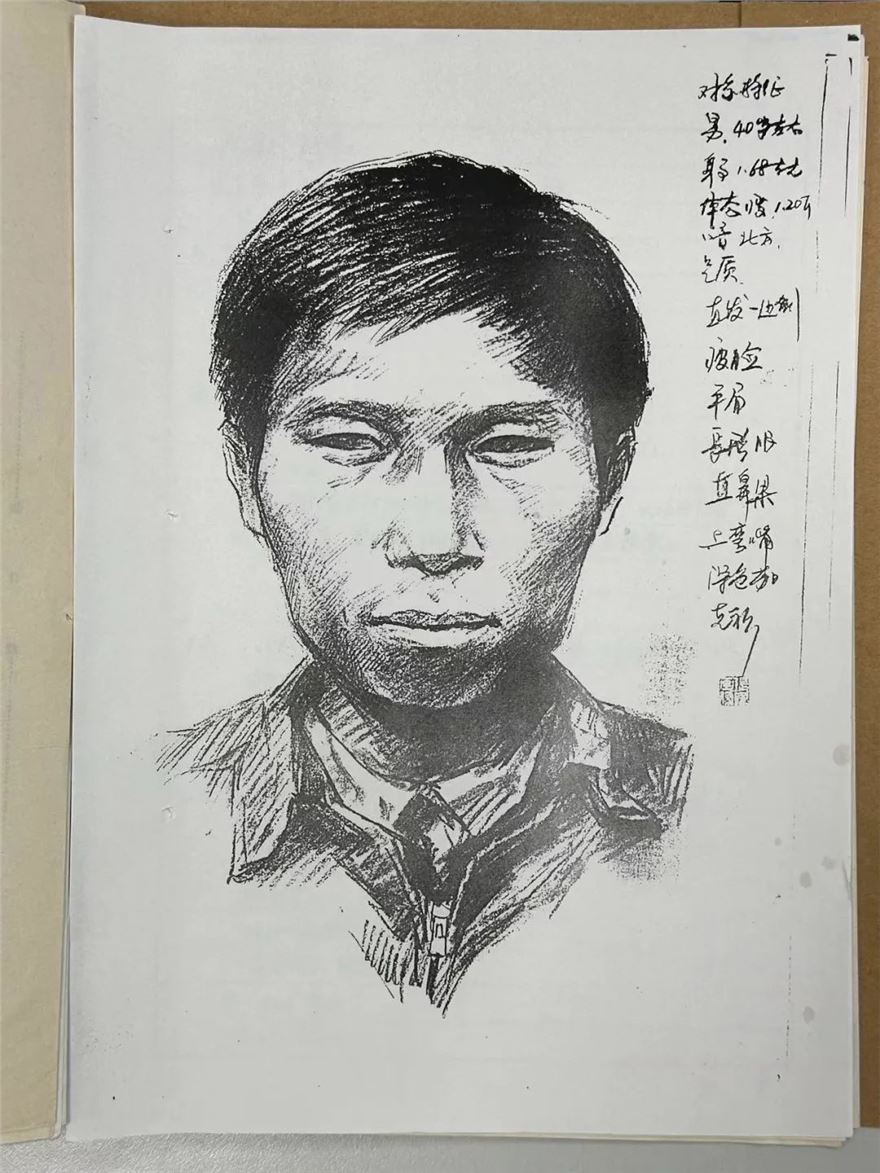 对象特征
男，40岁左右
身高1.68左右
体态瘦，120斤
口音北方，
气质
直发一边倒
瘦脸
平眉
长形眼
直鼻梁
上弯嘴
深色夹
克衫